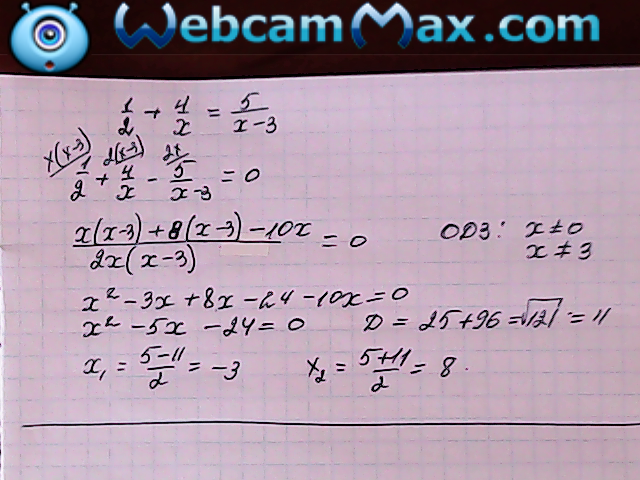 WebcamMax.com
1/2 + 4/x = 5/(x-3)
x(x-3) 2(x-3) 2x
1/2 + 4/x - 5/(x-3) = 0
(x(x-3)+8(x-3)-10x)/(2x(x-3)) = 0 ОДЗ: x≠0
x≠3
x² - 3x + 8x - 24 - 10x = 0
x² - 5x - 24 = 0 D = 25+96 = √121 = 11
x₁ = (5-11)/2 = -3 x₂ = (5+11)/2 = 8.